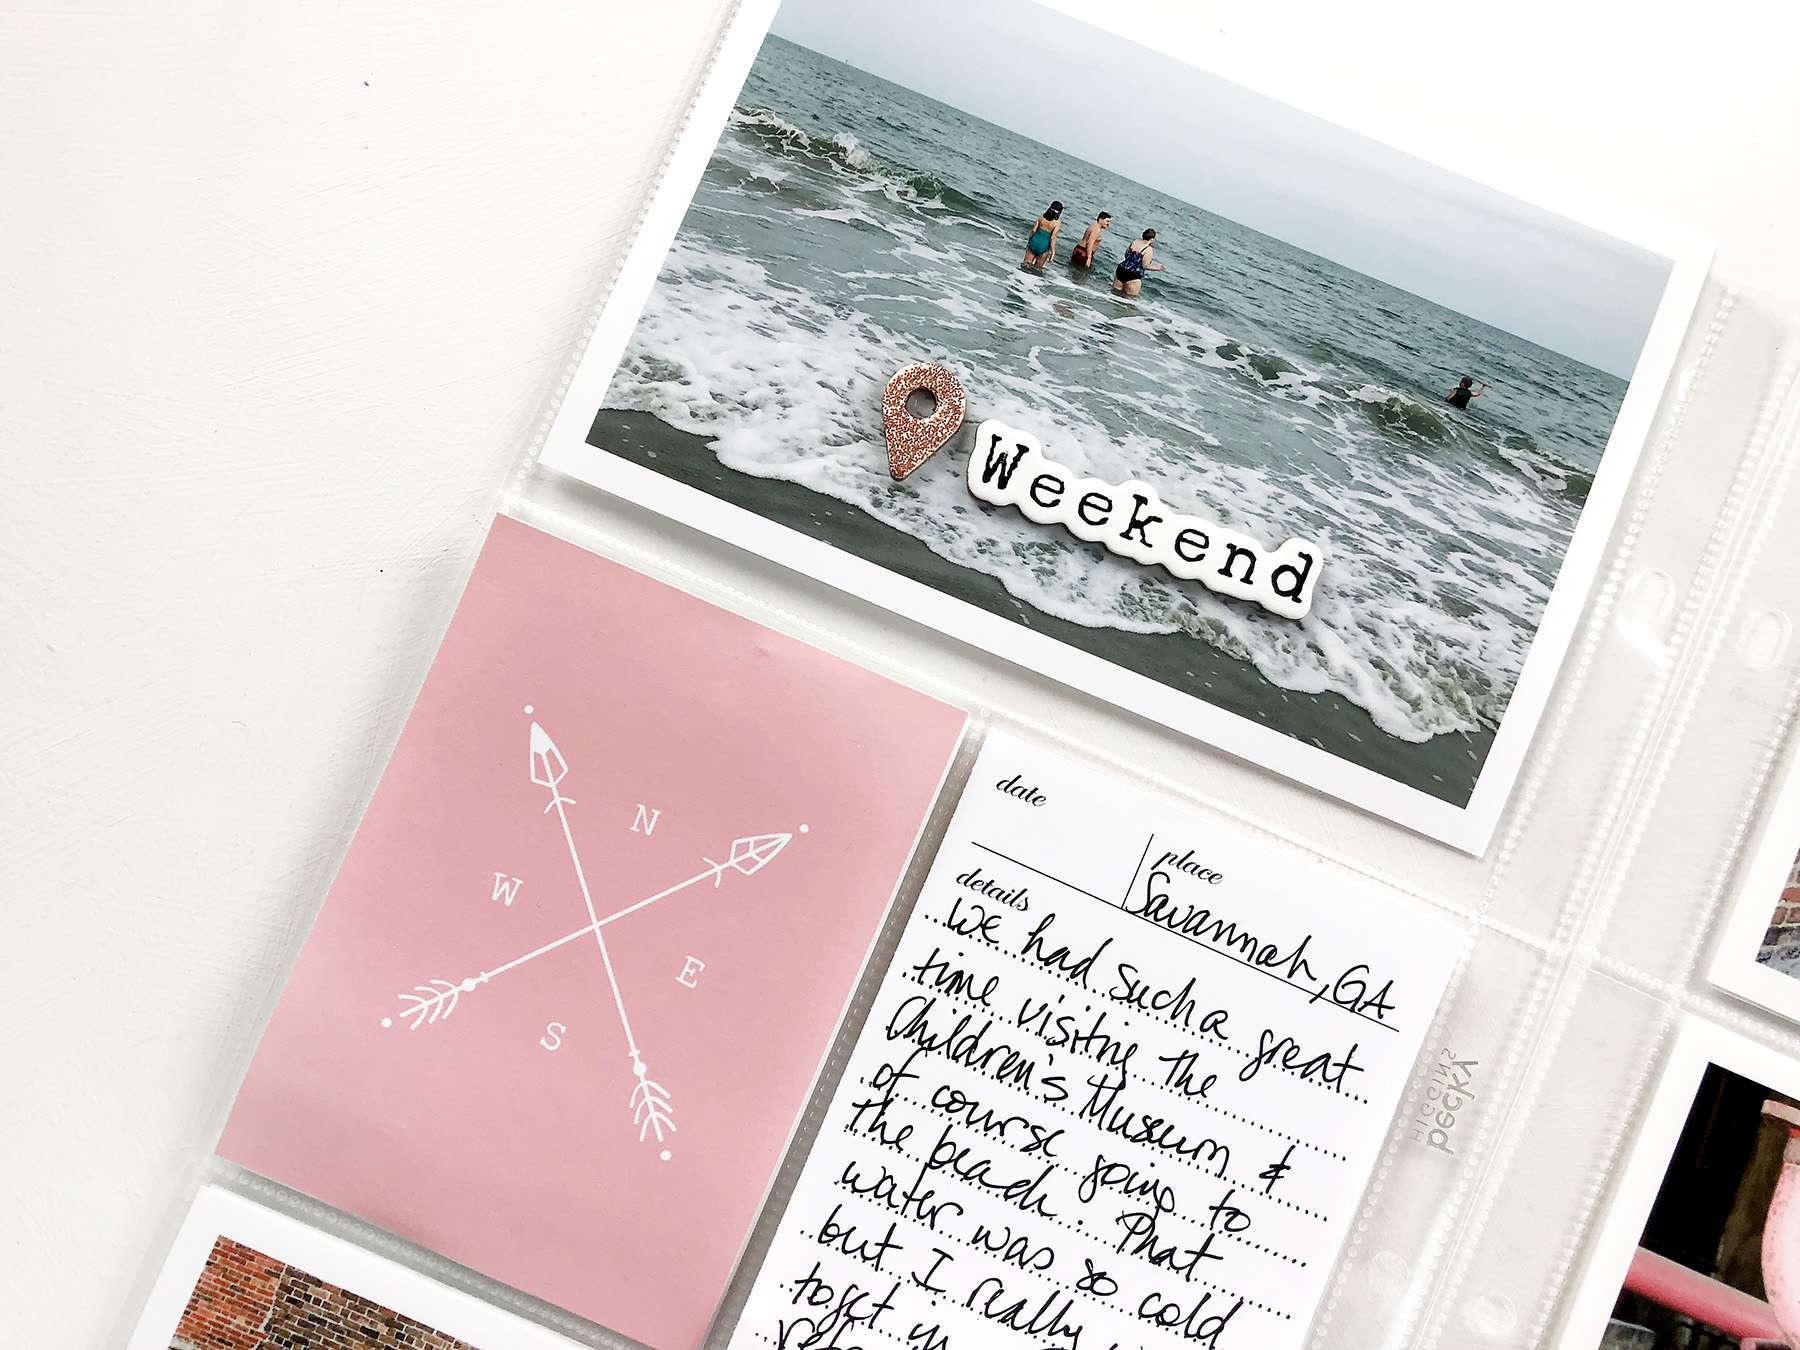 Weekend
N
W
E
S
date
place
Savannah, GA
details
We had such a great
time visiting the
Children's Museum &
of course going to
the beach. That
water was so cold
but I really
to get in
HIGGINS
pecky